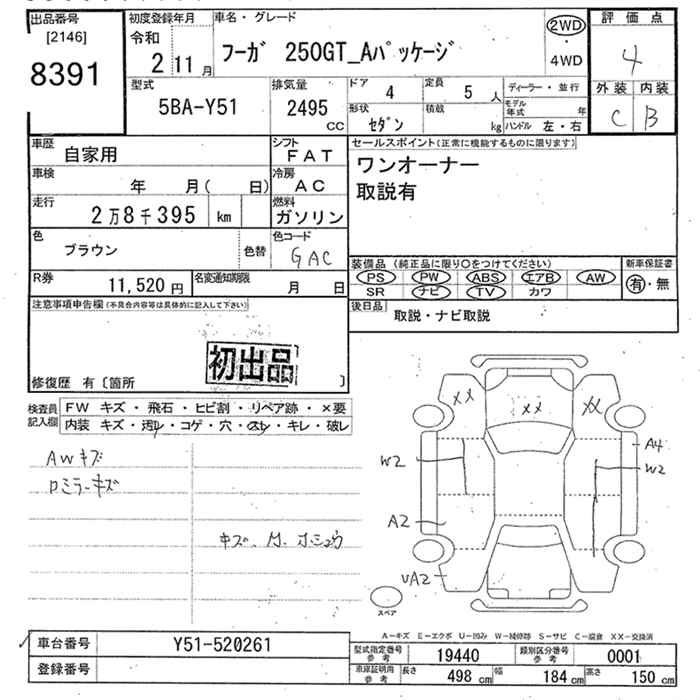 出品番号
[2146]
8391
初度登録年月
令和
2 11 月
車名・グレード
フーガ 250GT_Aパッケージ
2WD
・
4WD
評価点
4
外装 内装
C B
型式
5BA-Y51
排気量
2495
CC
ドア
4
定員
5 人
形状
セダン
積載
kg
ディーラー・並行
モデル年式
年
ハンドル 左・右
車歴
自家用
シフト
FAT
車検
年 月( 日)
冷房
AC
走行
2万8千395 km
燃料
ガソリン
色
ブラウン
色替
色コード
GAC
R券
11,520 円
名変通知期限
月 日
セールスポイント(正常に機能するものに限ります)
ワンオーナー
取説有
装備品 (純正品に限り○をつけてください)
PS PW ABS エアB AW
SR ナビ TV カワ
新車保証書
有・無
後日品
取説・ナビ取説
注意事項申告欄(不具合内容等は具体的に記入して下さい)
初出品
修復歴 有〔箇所 〕
検査員記入欄
FW キズ・飛石・ヒビ割・リペア跡・×要
内装 キズ・汚レ・コゲ・穴・スレ・キレ・破レ
AWキズ
ロミラーキズ
XX XX XX
A4
W2 W2
A2
UA2
スペア
A-キズ E-エクボ U-凹み W-補修跡 S-サビ C-腐食 XX-交換済
車台番号
Y51-520261
登録番号
型式指定番号
参考
19440
類別区分番号
参考
0001
車庫証明用
参考
長さ 498 cm 幅 184 cm 高さ 150 cm